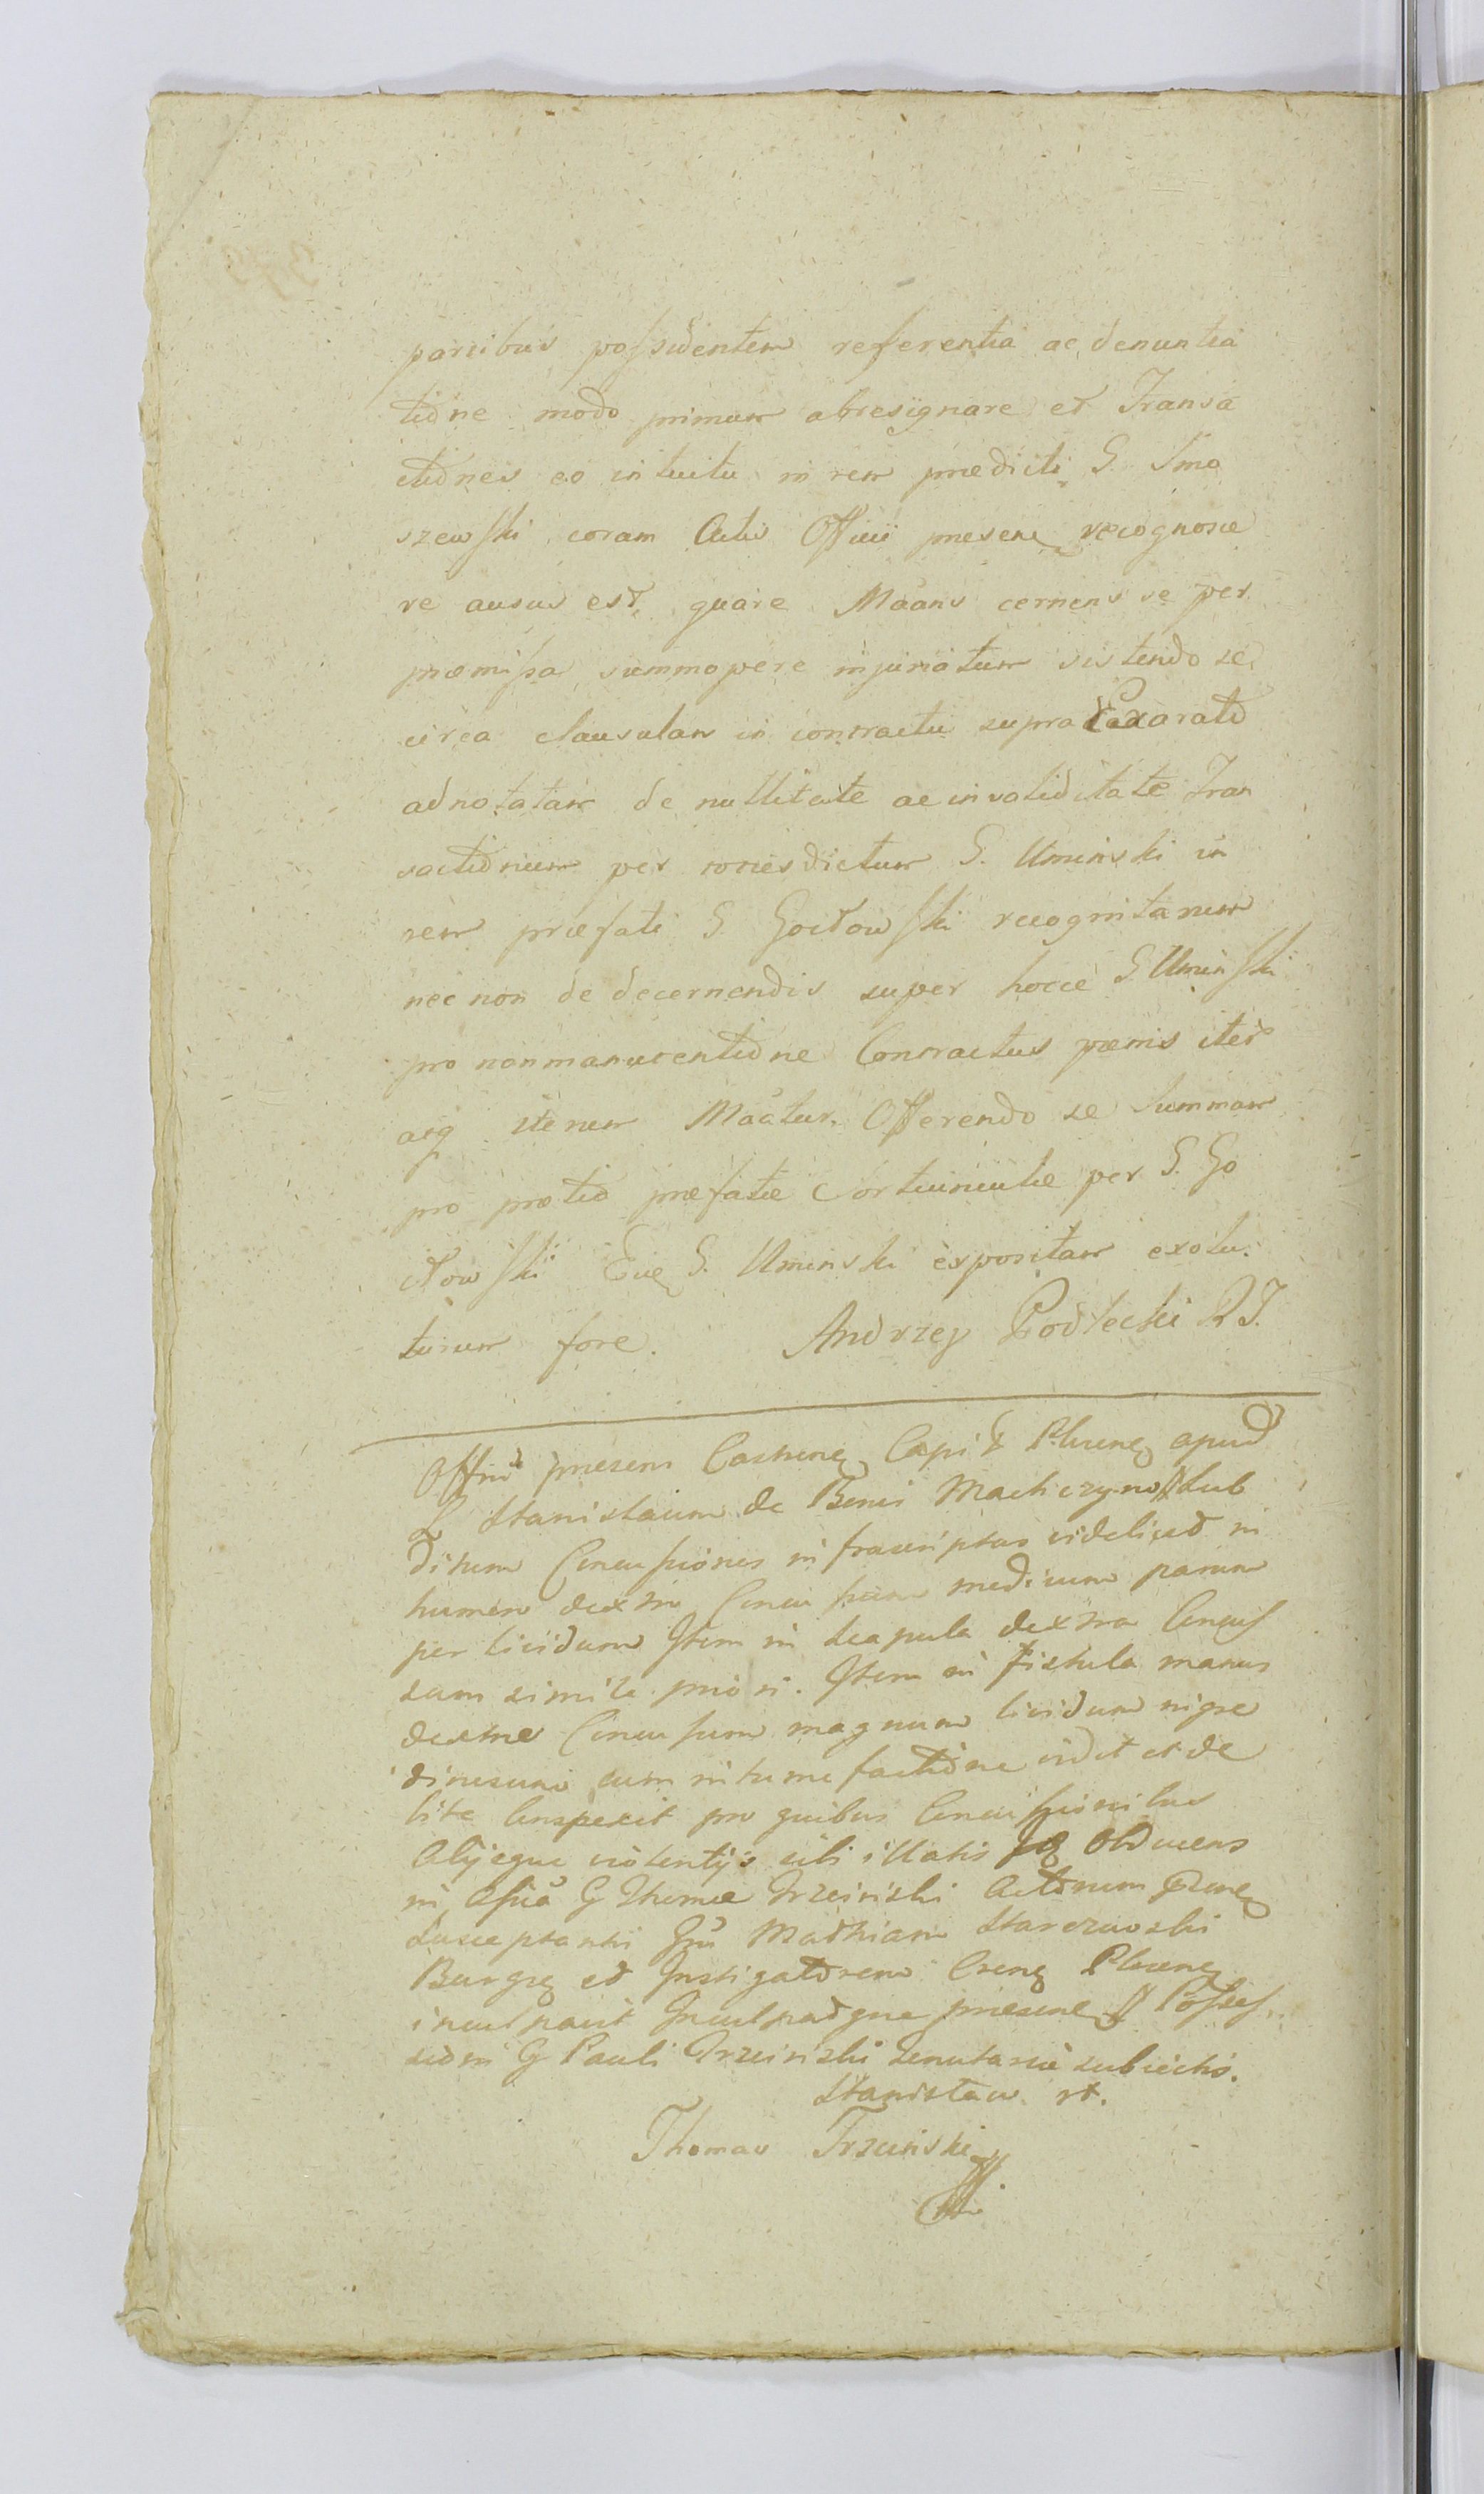 parcibus possidentem referentia ac denuntia
tione modo primum abresignare et Transa
ctiones eo intuitu in rem prædicti G. Smo
szewski coram Actis Officii presen recognosce
re ausus est, quare Maans cernens se per
præmissa summopere injuriatum sistendo se
circa clausulam in contractu supra Exarato
adnotatam de nullitate ac invaliditate Tran
sactionum per toties dictum G. Uminski in
rem præfati G. Goctowski recognitarum
nec non de decernendis super hocce G Uminski
pro non manutentione Contractus pœnis iter
atq iterum Maatur. Offerendo se Summam
pro pretio præfatæ per G. Go
ctowski G. Uminski expositam exolu
turum fore. Andrzey Podlecki R J.
Offm presens Castrene Capi Plocene apud
L Stanislaum de Bonis Machczyno Sub
ditum Concussiones infrascriptas videlicet in
humero dextro Concussum medicum parum
per lividum Item in Scapula dextra Concus
sum simile priori. Item in fistula manus
dextræ Concussum magnum lividum nigre
dinosum cum intumefactione vidit et de
bite Conspexit pro quibus Concussionibus
Alijsque violentijs sibi illatis Obducens
in Assa G Thomæ Trzcinski Actorum
Susceptantis Gm Mathiam Starczewski
Burgre et Instigatorem Crene Plocene
inculpavit Inculpatque presene Posses
sioni G Pauli Trzcinski tenutarii subiectis.
Stanislaw rt.
Thomas Trzcinski